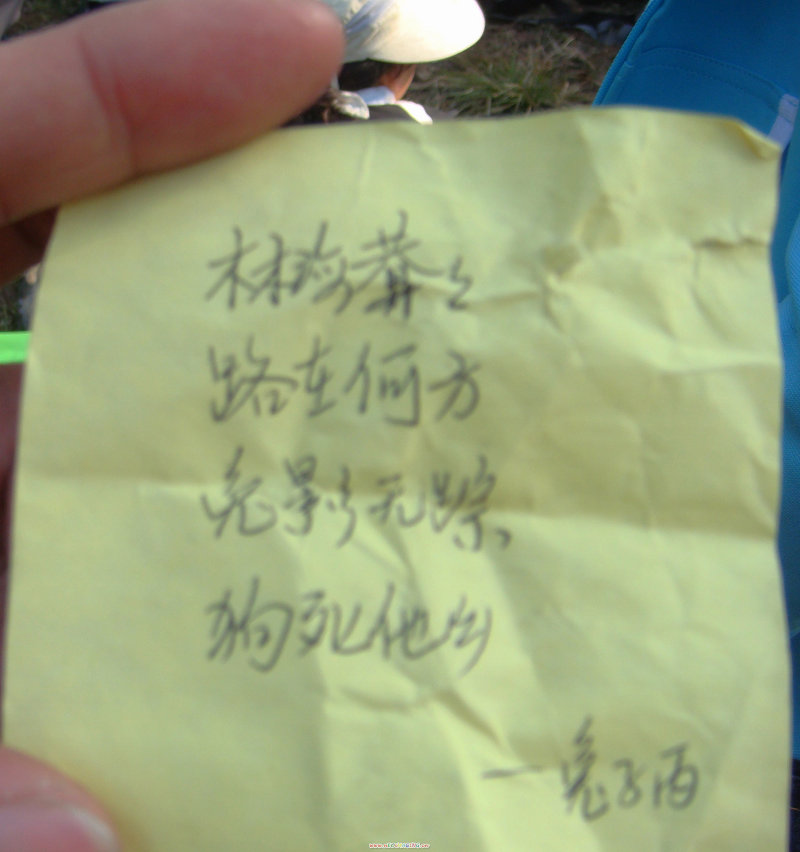 林海莽々
路在何方
兔影无踪
狗死他乡
—兔子酒